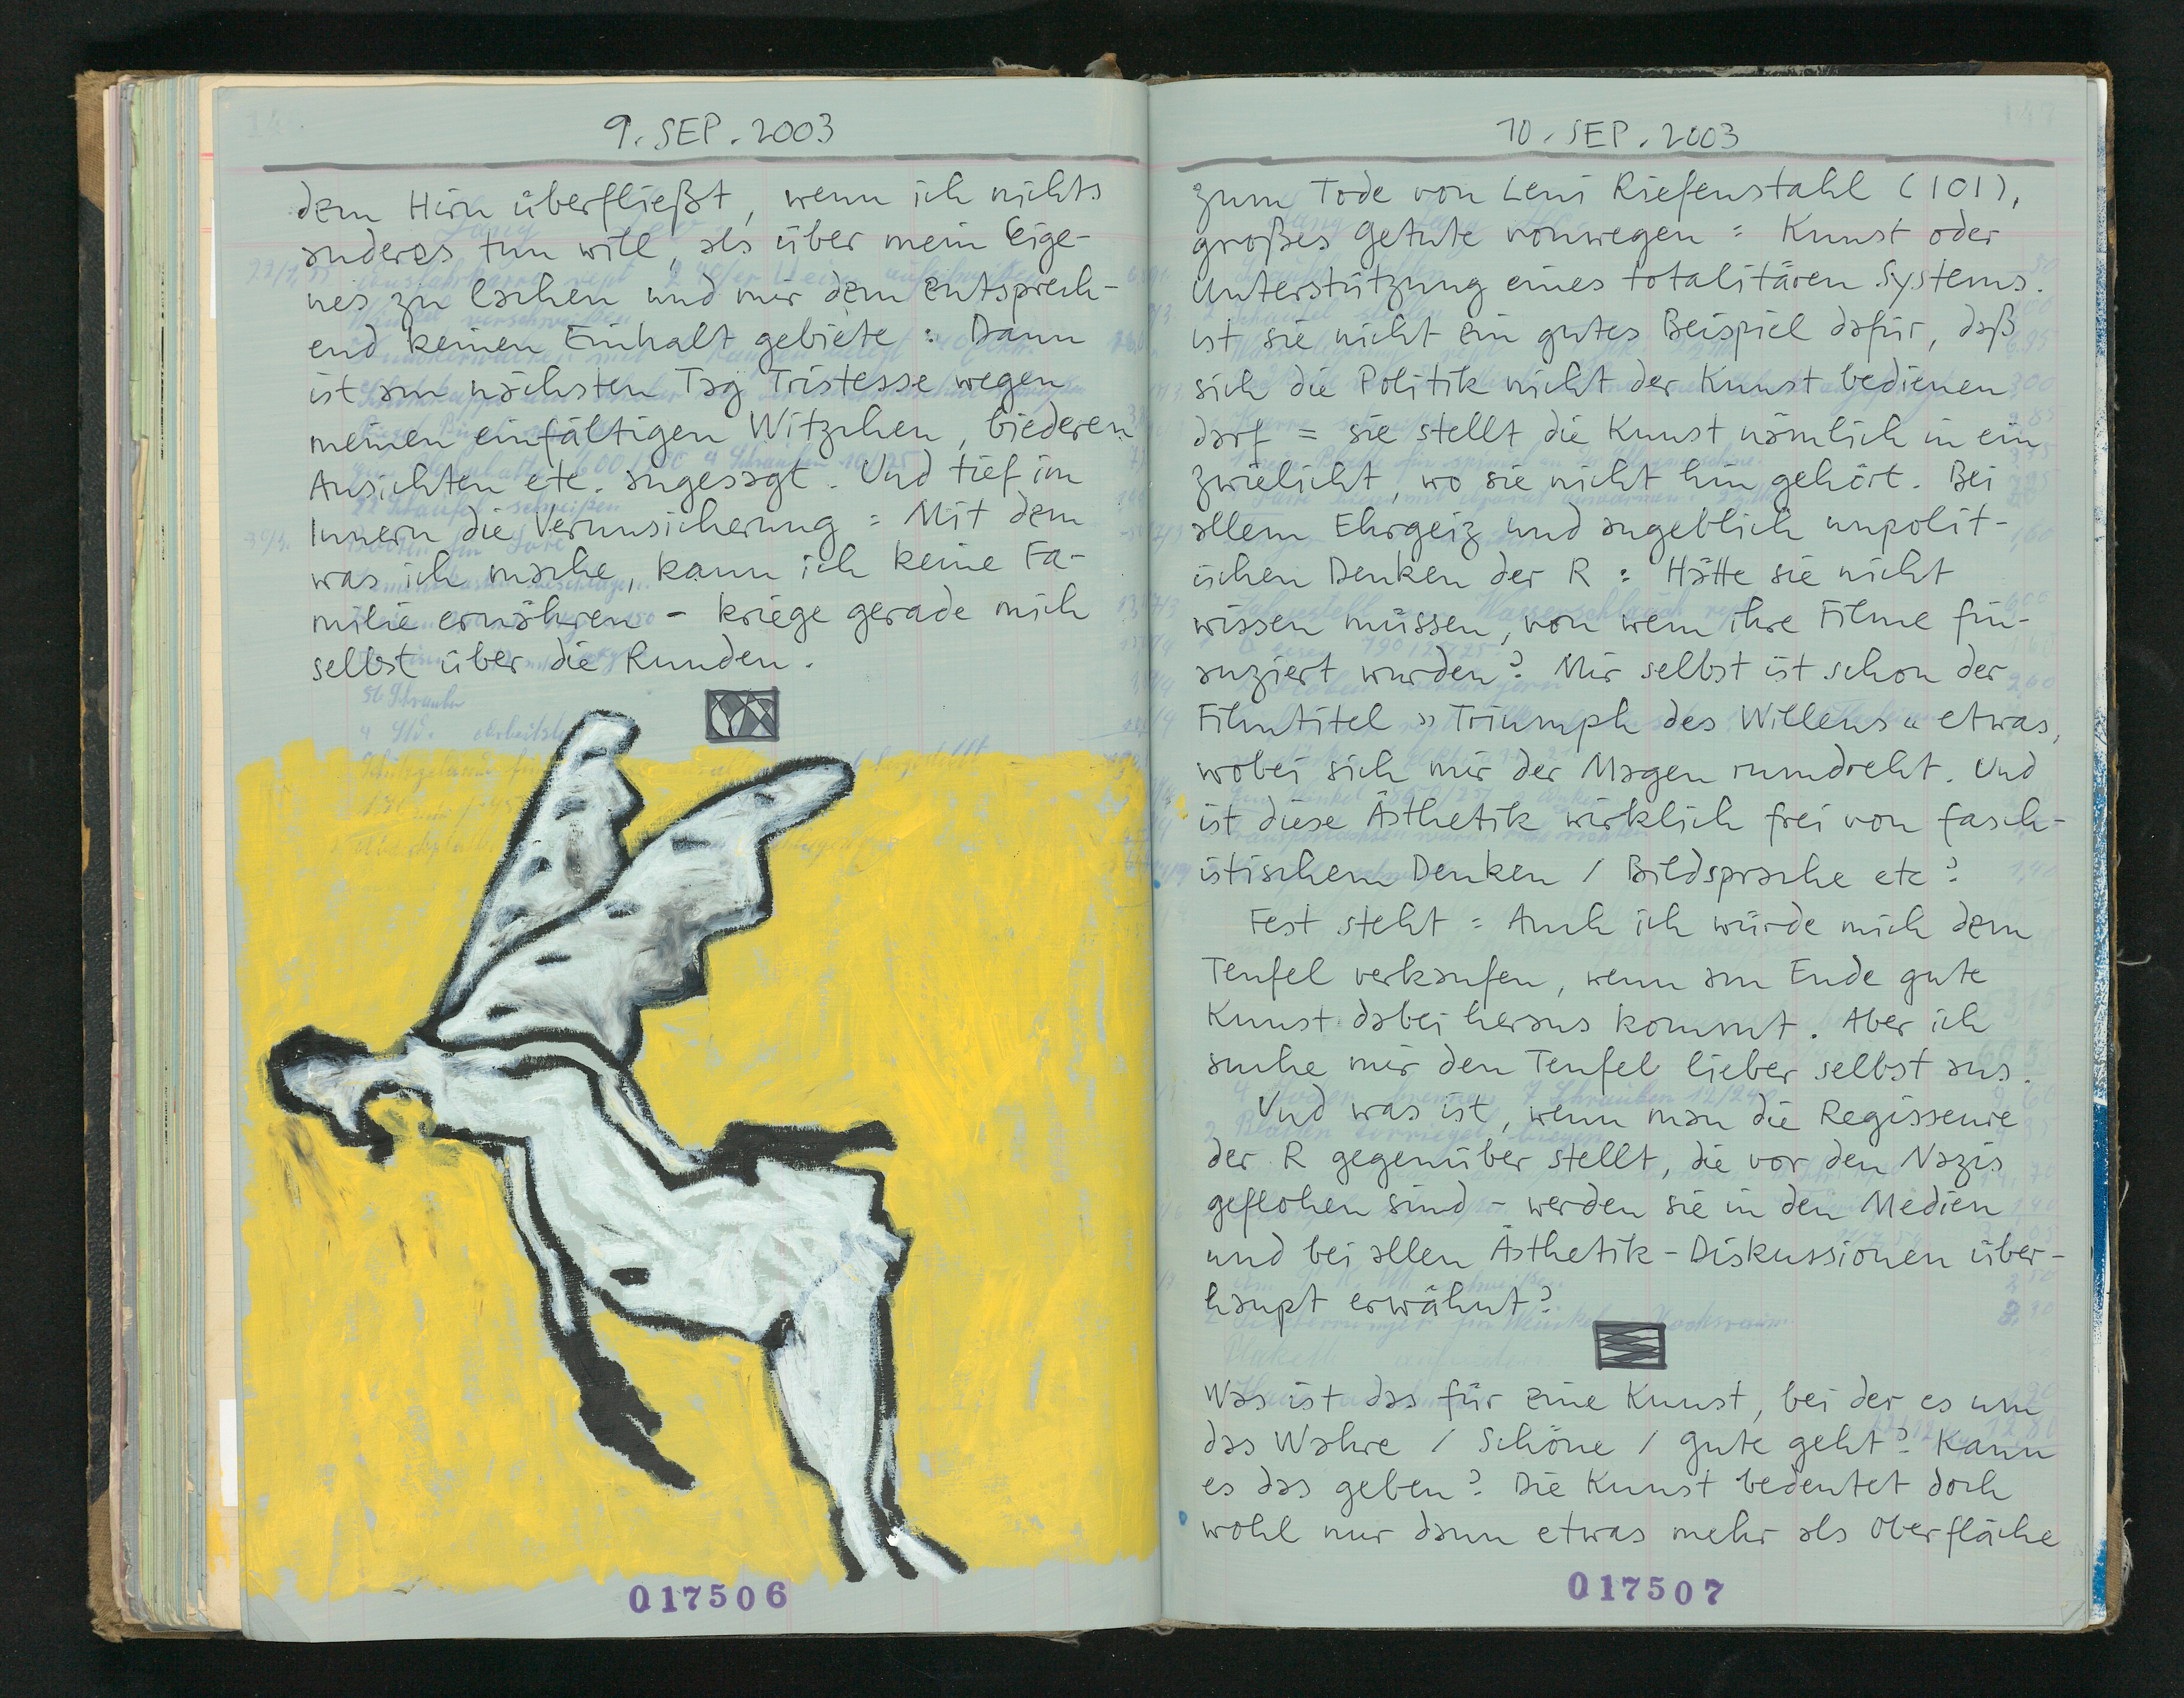 9. SEP. 2003
dem Hirn überfließt, wenn ich nichts
anderes tun will, als über mein Eige-
nes zu lachen und mir dem entsprech-
end keinen Einhalt gebiete: Dann
ist am nächsten Tag Tristesse wegen
meinen einfältigen Witzchen, biederen
Ansichten etc. angesagt. Und tief im
Innern die Verunsicherung = Mit dem
was ich mache, kann ich keine Fa-
milie ernähren - kriege gerade mich
selbst über die Runden.
017506
10. SEP. 2003
zum Tode von Leni Riefenstahl (101),
großes Getute vonwegen = Kunst oder
Unterstützung eines totalitären Systems.
ist sie nicht ein gutes Beispiel dafür, daß
sich die Politik nicht der Kunst bedienen
darf = sie stellt die Kunst nämlich in ein
zwielicht, wo sie nicht hin gehört. Bei
allem Ehrgeiz und angeblich unpolit-
ischen Denken der R : Hätte sie nicht
wissen müssen, von wem ihre Filme fin-
anziert wurden? Mir selbst ist schon der
Filmtitel »Triumph des Willens« etwas,
wobei sich mir der Magen rumdreht. Und
ist diese Ästhetik wirklich frei von fasch-
istischem Denken / Bildsprache etc?
Fest steht = Auch ich würde mich dem
Teufel verkaufen, wenn am Ende gute
Kunst dabei heraus kommt. Aber ich
suche mir den Teufel lieber selbst aus.
Und was ist, wenn man die Regisseure
der R gegenüber stellt, die vor den Nazis
geflohen sind - werden sie in den Medien
und bei allen Ästhetik-Diskussionen über-
haupt erwähnt?
Was ist das für eine Kunst, bei der es um
das Wahre / Schöne / Gute geht? Kann
es das geben? Die Kunst bedeutet doch
wohl nur dann etwas mehr als Oberfläche
017507